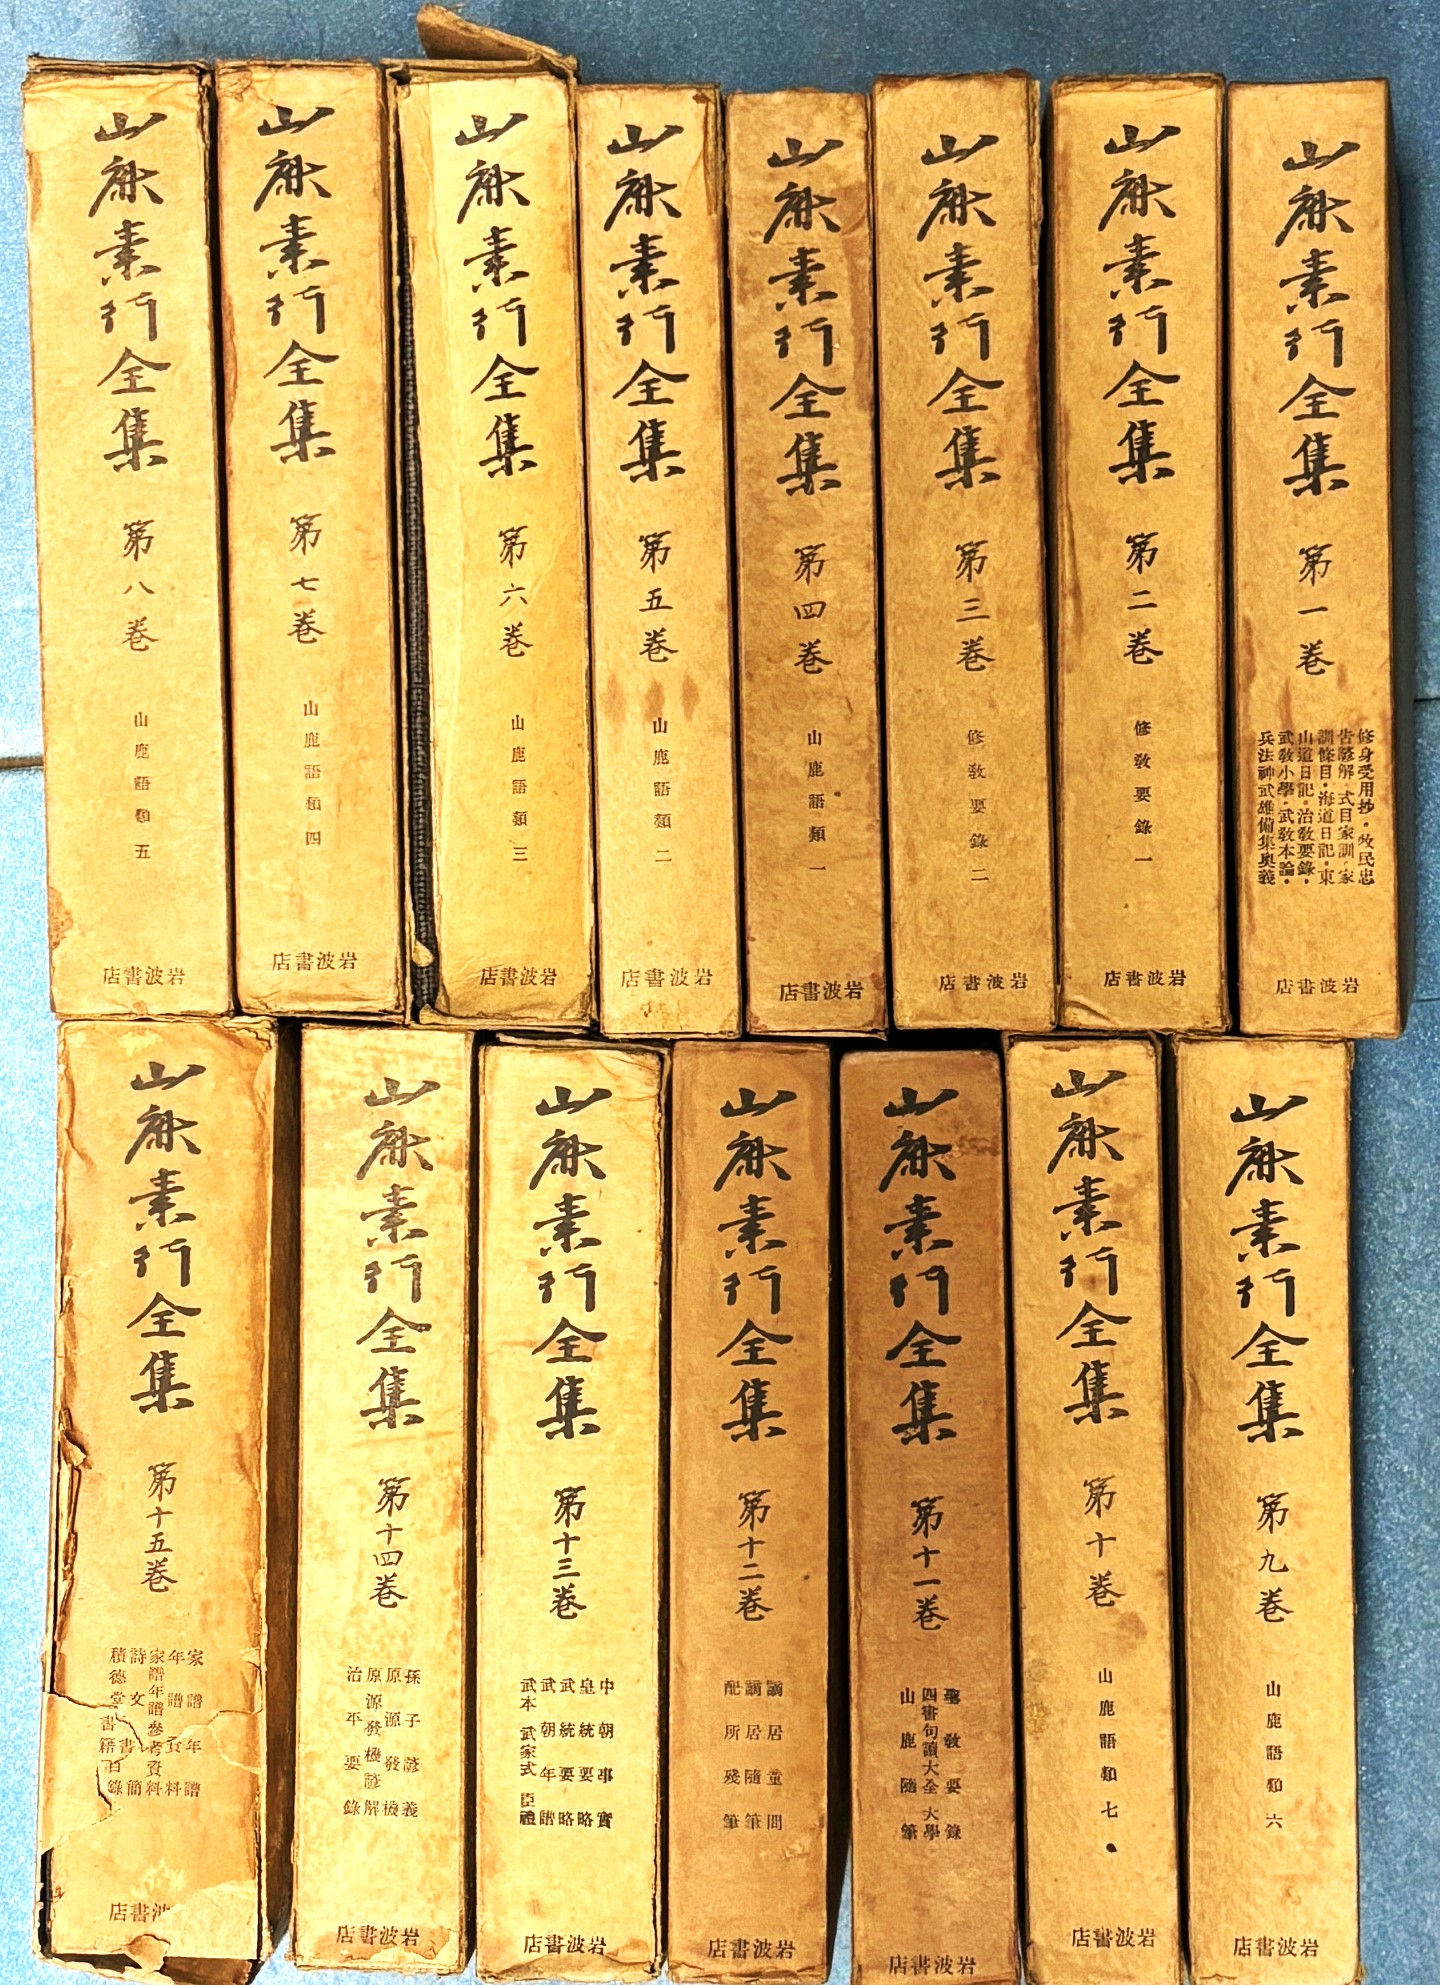 山鹿素行全集
第一卷
修身受用抄・牧民忠
告諺解・式目家訓・家
訓條目・海道日記・東
山道日記・治教要錄・
武教小學・武教本論・
兵法神武雄備集奧義
岩波書店
山鹿素行全集
第二卷
修教要錄一
岩波書店
山鹿素行全集
第三卷
修教要錄二
岩波書店
山鹿素行全集
第四卷
山鹿語類一
岩波書店
山鹿素行全集
第五卷
山鹿語類二
岩波書店
山鹿素行全集
第六卷
山鹿語類三
岩波書店
山鹿素行全集
第七卷
山鹿語類四
岩波書店
山鹿素行全集
第八卷
山鹿語類五
岩波書店
山鹿素行全集
第九卷
山鹿語類六
岩波書店
山鹿素行全集
第十卷
山鹿語類七
岩波書店
山鹿素行全集
第十一卷
聖教要錄
四書句讀大全 大學
山鹿隨筆
岩波書店
山鹿素行全集
第十二卷
謫居童問
謫居隨筆
配所殘筆
岩波書店
山鹿素行全集
第十三卷
中朝事實
皇統要略
武統要略
武朝年譜
武本 武家式 臣禮
岩波書店
山鹿素行全集
第十四卷
孫子諺義
原源發機
原源發機諺解
治平要錄
岩波書店
山鹿素行全集
第十五卷
家譜年譜
年譜資料
家譜年譜參考資料
詩文書簡
積德堂書籍目錄
波書店